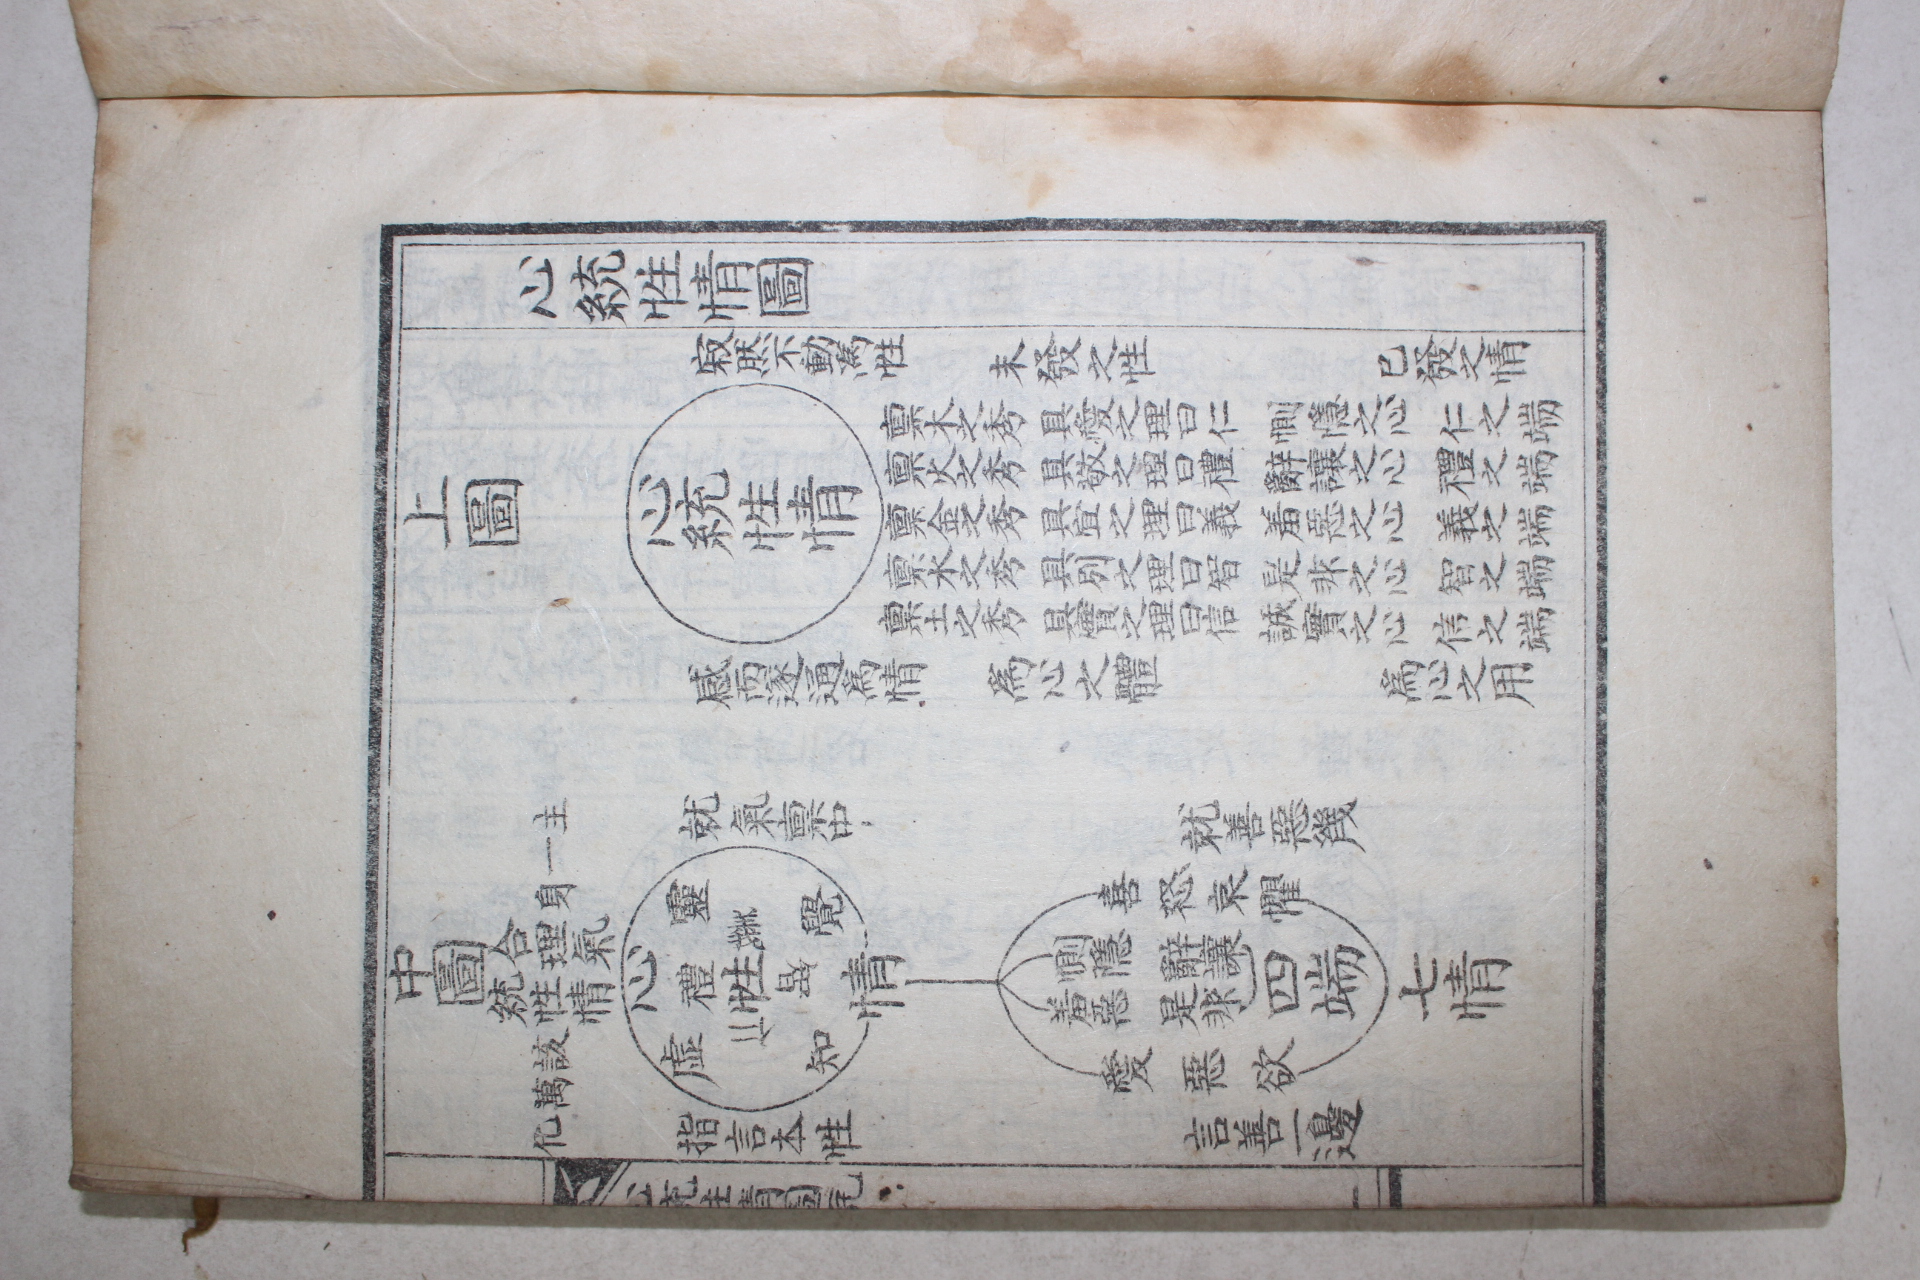 心統性情圖
上圖
寂然不動爲性
心統性情
感而遂通爲情
未發之性
稟木之秀 具愛之理曰仁
稟火之秀 具敬之理曰禮
稟金之秀 具宜之理曰義
稟水之秀 具別之理曰智
稟土之秀 具實之理曰信
爲心之體
已發之情
惻隱之心 仁之端
辭讓之心 禮之端
羞惡之心 義之端
是非之心 智之端
誠實之心 信之端
爲心之用
中圖
主一身
合理氣
統性情
該萬化
就氣稟中
心
靈
虛
禮
性
覺
知
情
指言本性
就善惡幾
喜怒哀懼
惻隱
辭讓
羞惡
是非
四端
愛惡欲
七情
言善一邊